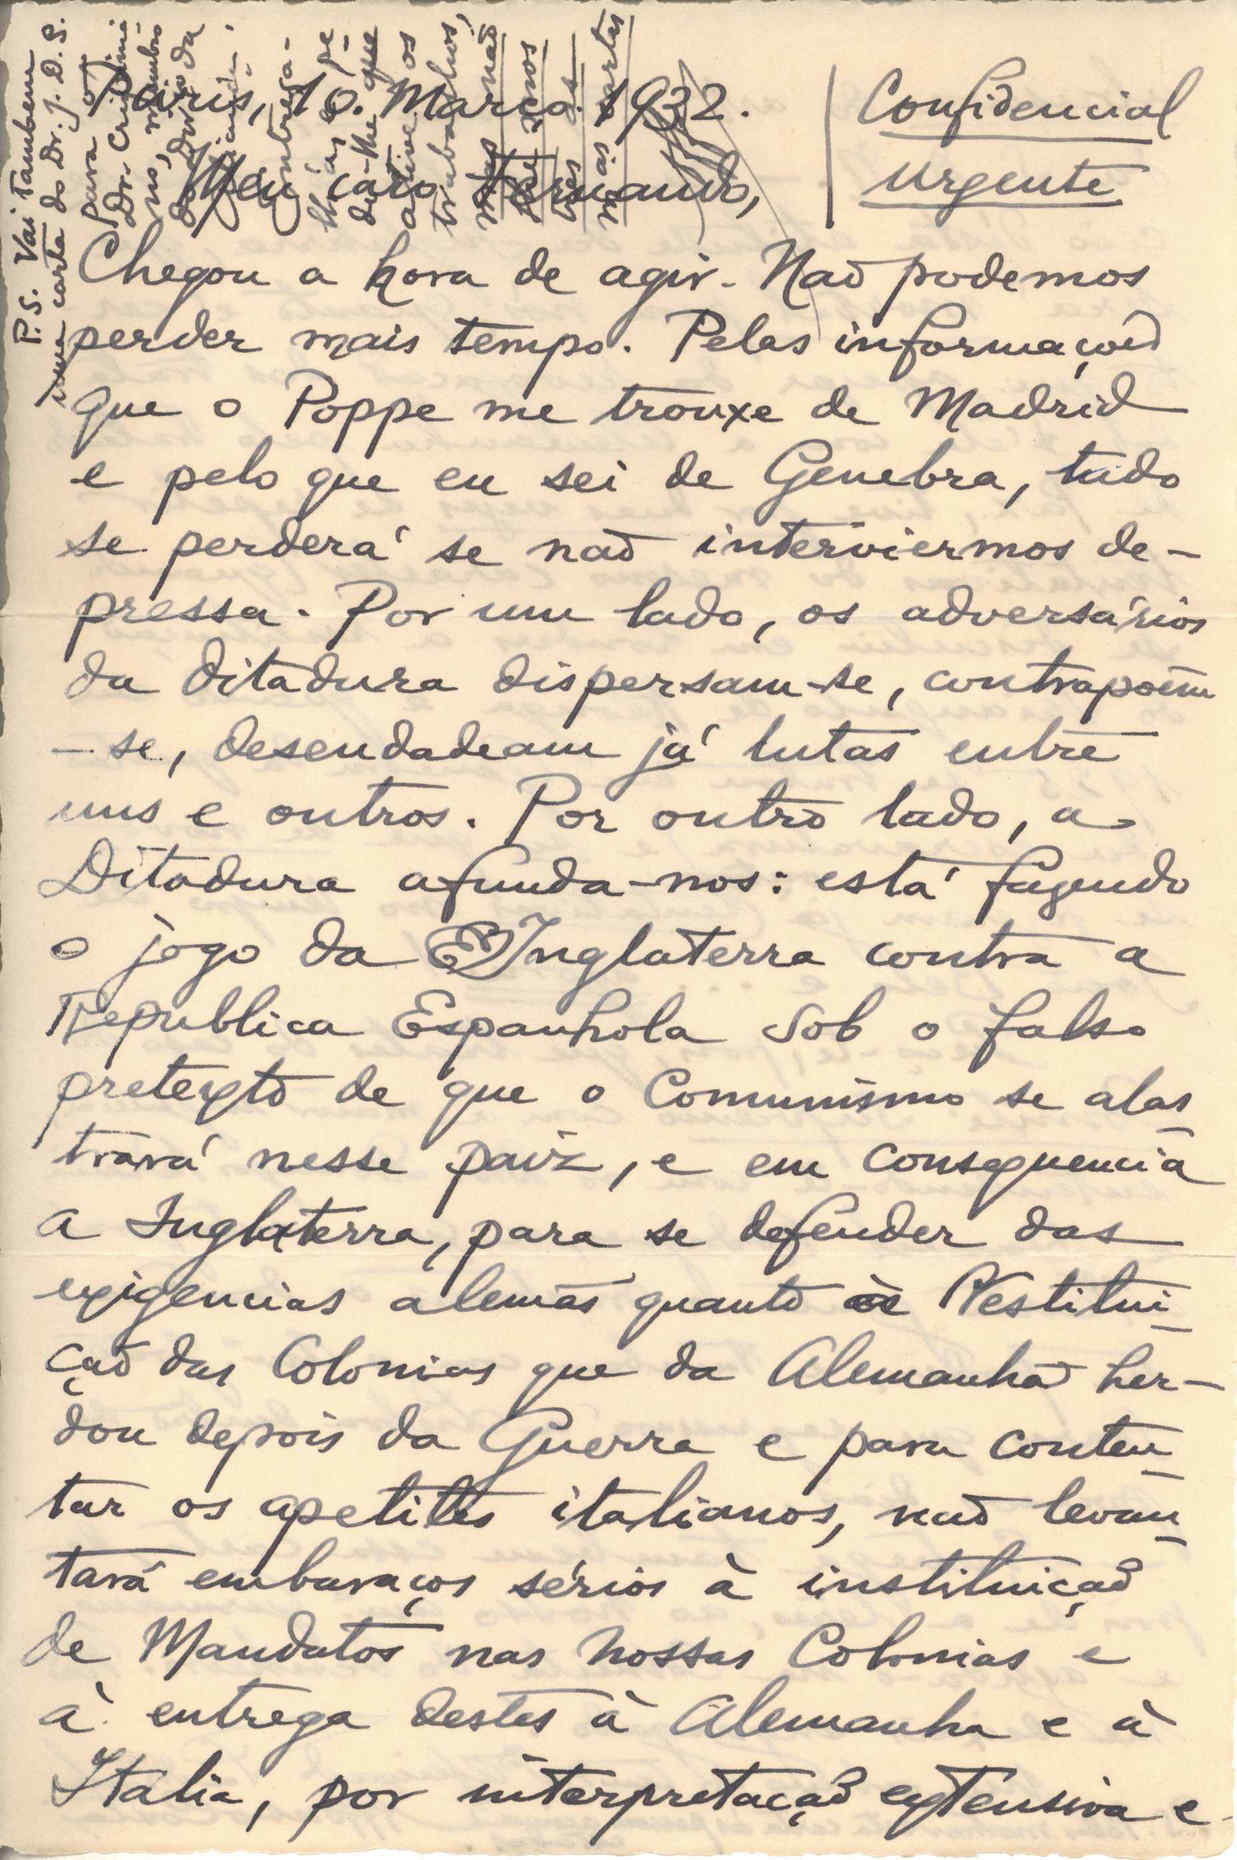 Confidencial
Urgente
Paris, 10. Março. 1932.
Meu caro Fernando,
Chegou a hora de agir. Não podemos
perder mais tempo. Pelas informações
que o Poppe me trouxe de Madrid
e pelo que eu sei de Genebra, tudo
se perderá se não interviermos de-
pressa. Por um lado, os adversários
da Ditadura dispersam-se, contrapõem
-se, desendadeam já lutas entre
uns e outros. Por outro lado, a
Ditadura afunda-nos: está fazendo
o jogo da Inglaterra contra a
Republica Espanhola sob o falso
pretexto de que o Comunismo se alas
trará nesse paiz, e em consequencia
a Inglaterra, para se defender das
exigencias alemãs quanto à Restitui-
ção das Colonias que da Alemanha her-
dou depois da Guerra e para conten-
tar os apetites italianos, não levan-
tará embaraços sérios à instituição
de Mandatos nas nossas Colonias e
à entrega destes à Alemanha e à
Italia, por interpretação extensiva e
P.S. Vai tambem
uma carta do Dr. J. D. S.
para o
Dr.
trabalhos,
mas não
mas cartas